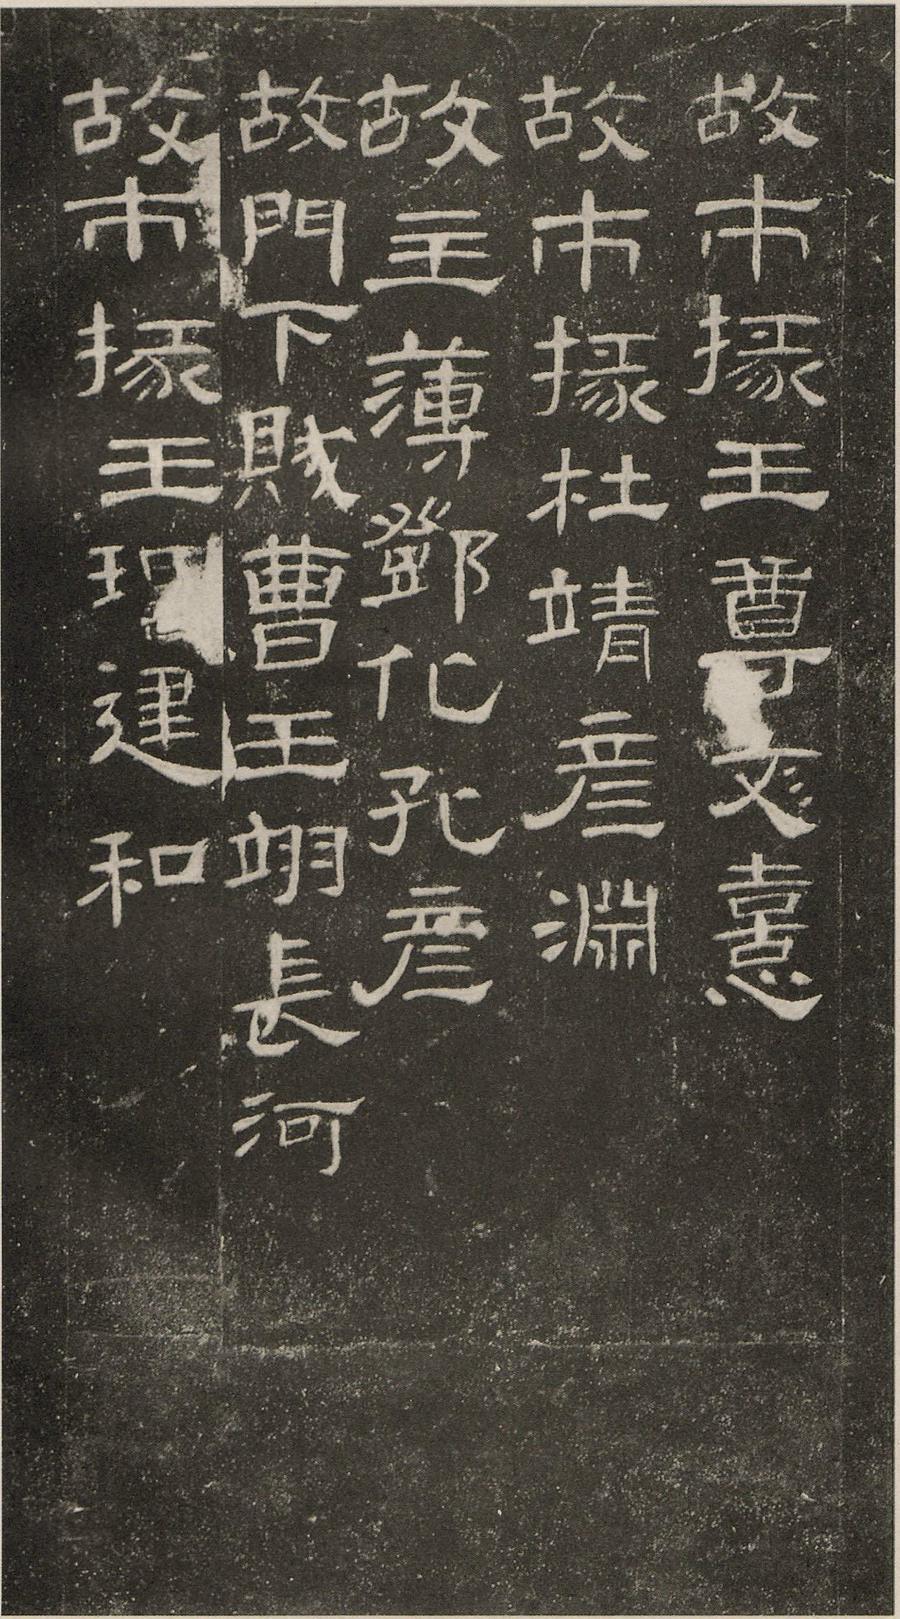 故市掾王尊文憙
故市掾杜靖彦淵
故主薄鄧化孔彦
故門下賊曹王翊長河
故市掾王建和